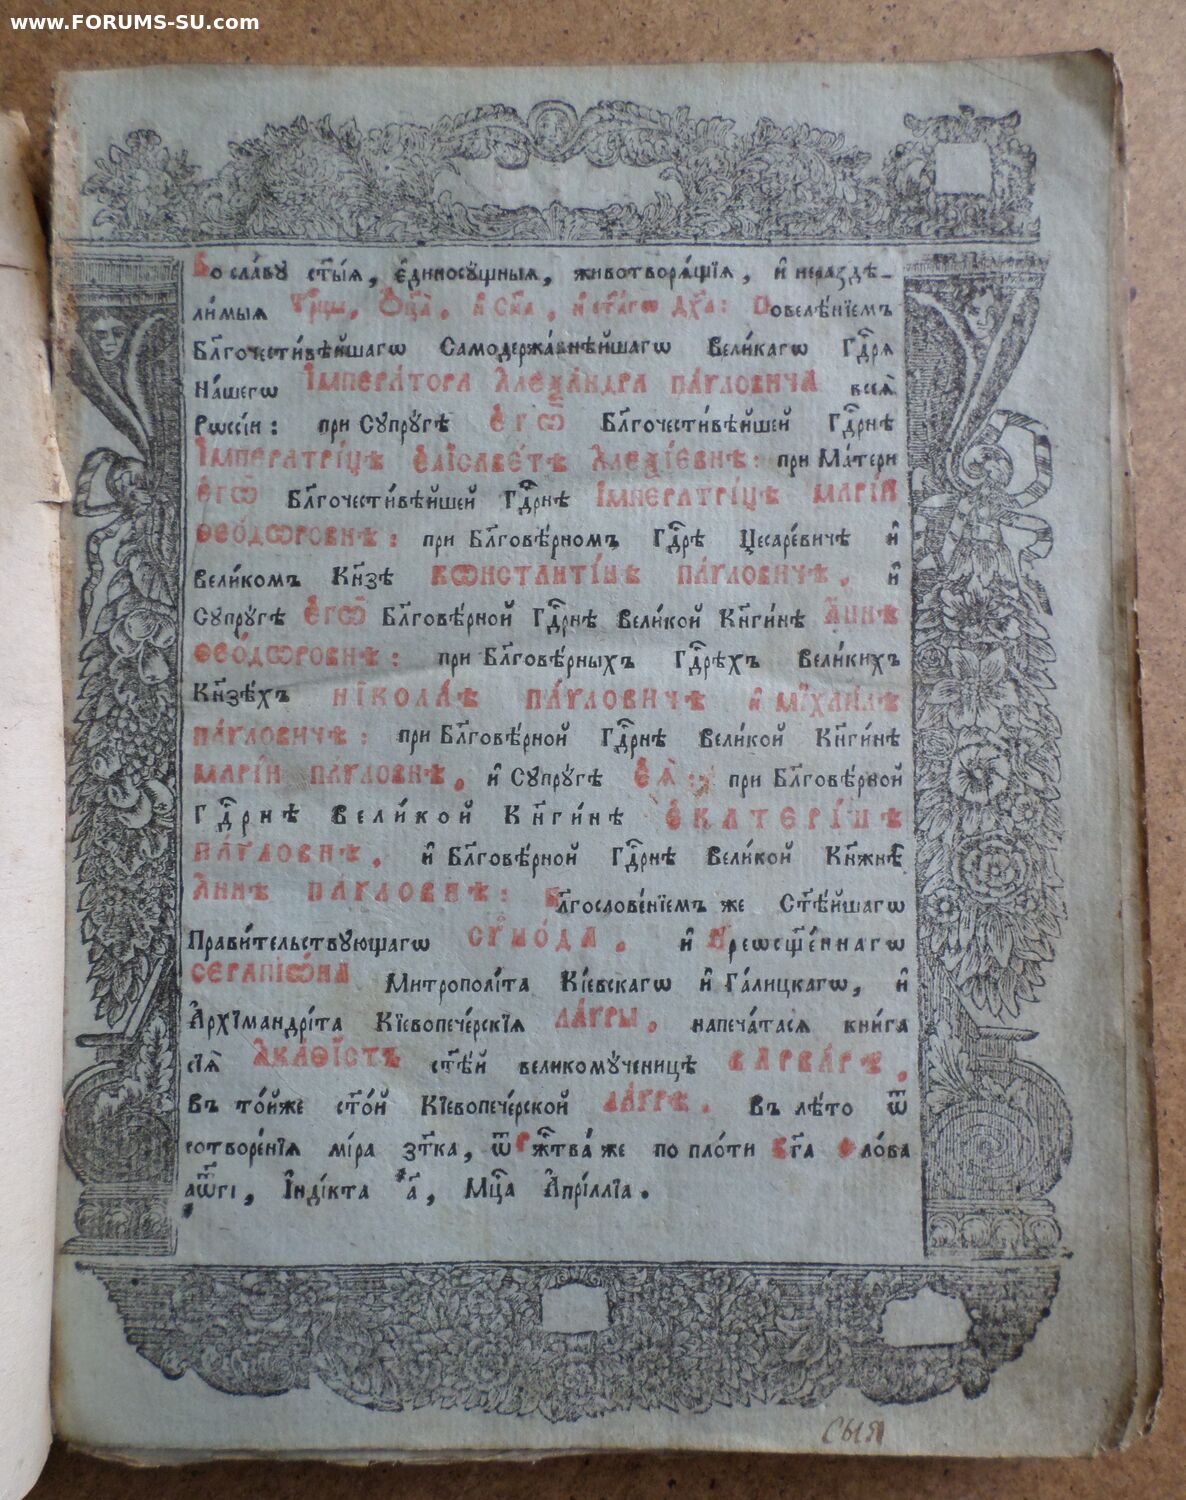 www.FORUMS-SU.com
Во сла́ву ст҃ы́ѧ, є҆диносꙋ́щныѧ, животворѧ́щїѧ, и҆ неразде-
ли́мыѧ Трⷪ҇цы, Ѻ҆ц҃а̀, и҆ Сн҃а, и҆ ст҃а́гѡ Дх҃а: Повелѣ́нїемъ
Бл҃гочести́вѣйшагѡ Самодержа́внѣйшагѡ Вели́кагѡ Гдⷭ҇рѧ
На́шегѡ І҆МПЕРА́ТОРА А҆ЛЕѮА́НДРА ПА́ѴЛОВИЧА всеѧ̀
Рѡссі́и: при Сꙋпрꙋ́гѣ Є҆ГѠ̀ Бл҃гочести́вѣйшей Гдⷭ҇рнѣ
І҆МПЕРАТРІ́ЦѢ Є҆ЛІСАВЕ́ТѢ А҆ЛЕѮІ́ЕВНѢ: при Ма́тери
Є҆ГѠ̀ Бл҃гочести́вѣйшей Гдⷭ҇рнѣ І҆МПЕРАТРІ́ЦѢ МАРІ́И
ѲЕО́ДѠРОВНѢ: при Бл҃говѣ́рномъ Гдⷭ҇рѣ Цесаре́вичѣ и҆
Вели́комъ Кн҃зѣ КѠНСТАНТІ́НѢ ПА́ѴЛОВИЧѢ, и҆
Сꙋпрꙋ́гѣ Є҆ГѠ̀ Бл҃говѣ́рной Гдⷭ҇рнѣ Вели́кой Кн҃ги́нѣ А҆́ННѢ
ѲЕО́ДѠРОВНѢ: при Бл҃говѣ́рныхъ Гдⷭ҇рѣхъ Вели́кихъ
Кн҃зѣ́хъ НІКОЛА́Ѣ ПА́ѴЛОВИЧѢ и҆ МІХАИ́ЛѢ
ПА́ѴЛОВИЧѢ: при Бл҃говѣ́рной Гдⷭ҇рнѣ Вели́кой Кн҃ги́нѣ
МАРІ́И ПА́ѴЛОВНѢ, и҆ Сꙋпрꙋ́гѣ Є҆Ѧ̀: при Бл҃говѣ́рной
Гдⷭ҇рнѣ Вели́кой Кн҃ги́нѣ Є҆КАТЕРІ́НѢ
ПА́ѴЛОВНѢ, и҆ Бл҃говѣ́рной Гдⷭ҇рнѣ Вели́кой Кн҃жнѣ̀
А҆́ННѢ ПА́ѴЛОВНѢ: Бл҃гослове́нїемъ же Ст҃ѣ́йшагѡ
Прави́тельствꙋющагѡ СѴНО́ДА, и҆ Преѡсщ҃е́ннагѡ
СЕРАПІѠ́НА Митрополі́та Кі́евскагѡ и҆ Га́лицкагѡ, и҆
А҆рхїмандрі́та Кїевопече́рскїѧ ЛА́ѴРЫ, напеча́тасѧ книга
сїѧ̀ А҆КА́ѲІСТЪ ст҃ѣ́й великомꙋ́ченицѣ ВАРВА́РѢ,
въ то́йже ст҃о́й Кїевопече́рской ЛА́ѴРѢ, въ лѣ́то ѿ
сотворе́нїѧ мі́ра зт҃ка, ѿ Ржⷭ҇тва́ же по пло́ти Бг҃а Сло́ва
аѿ҃гі, І҆нді́кта а҃, Мцⷭ҇а А҆прі́ллїа.
сыя